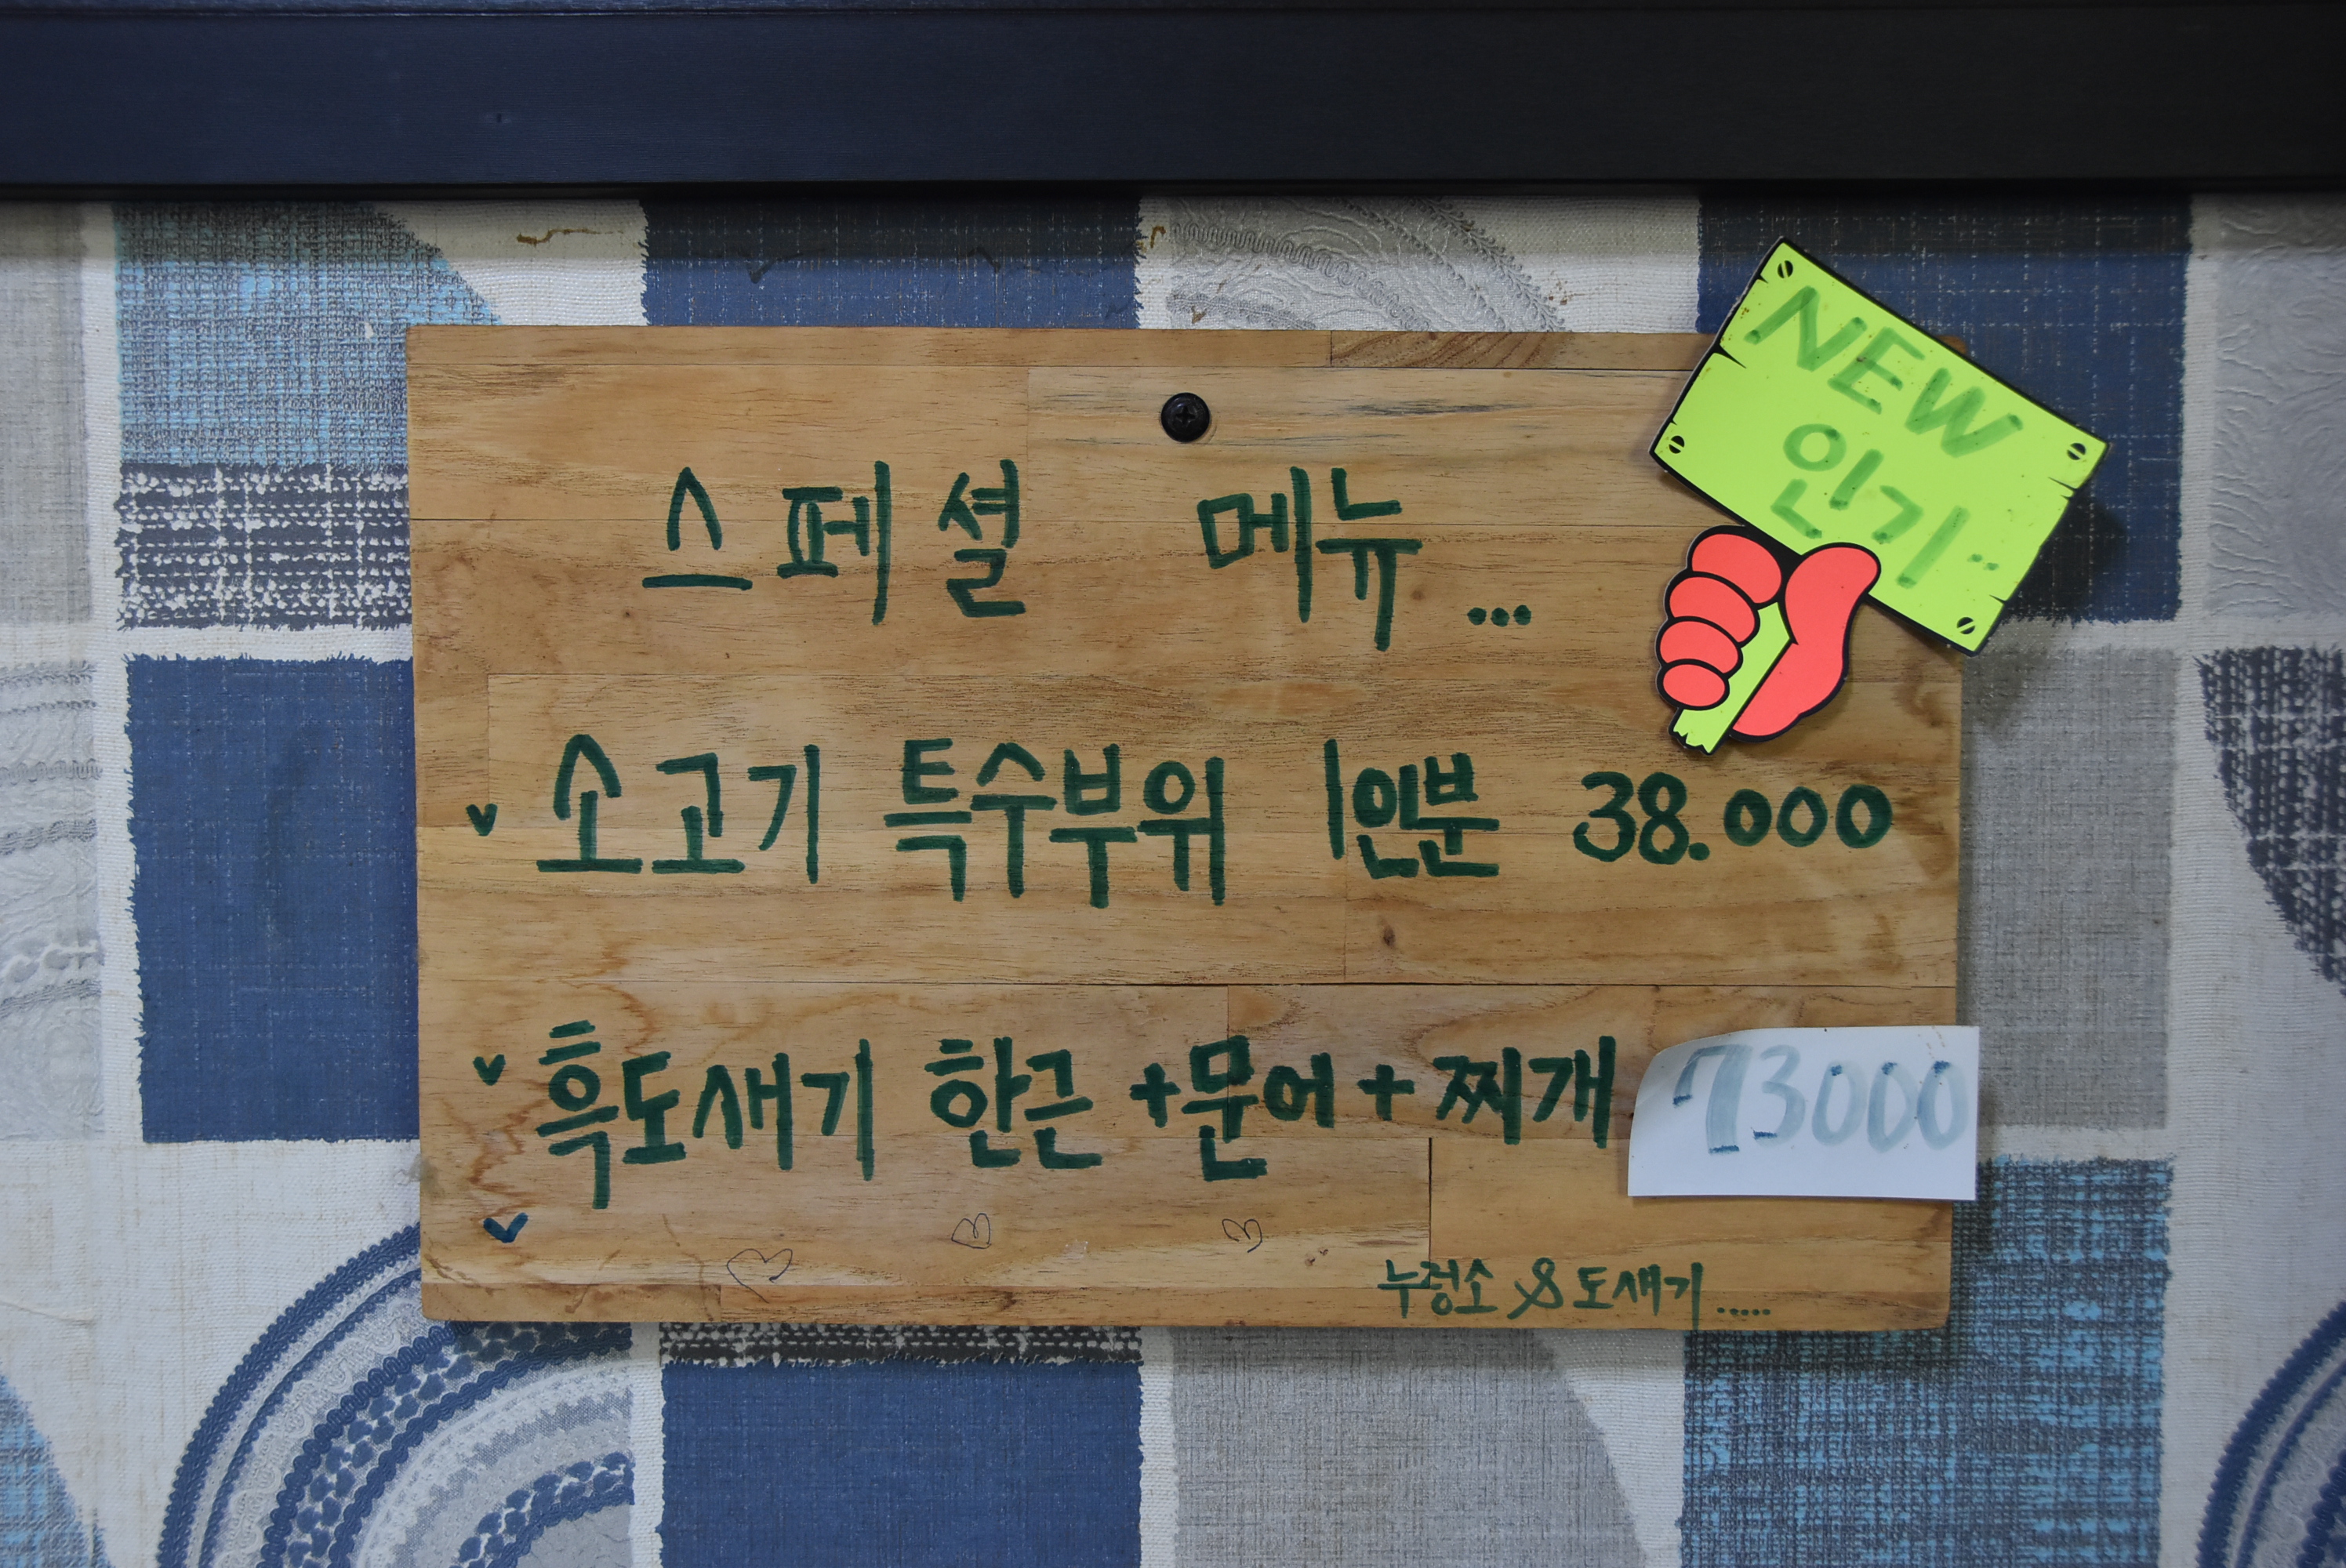 NEW
인기..
스페셜 메뉴...
소고기 특수부위 1인분 38.000
흑도새기 한근 +문어 + 찌개 73000
누렁소 & 도새기.....